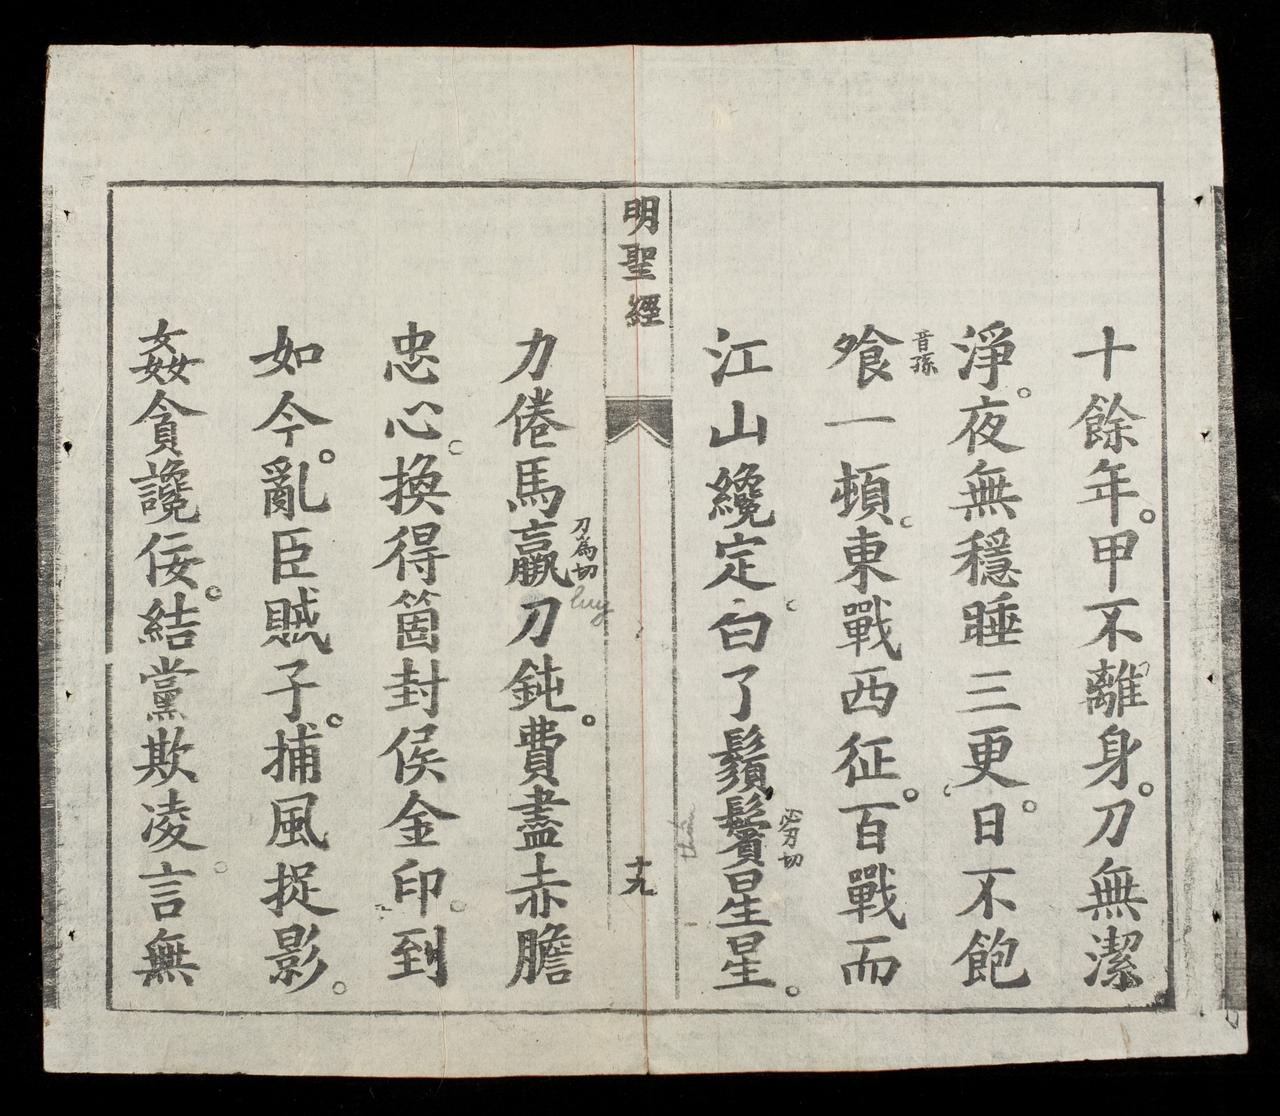 十餘年。甲不離身。刀無潔
淨。夜無穩睡三更。日不飽
飧一頓。東戰西征。百戰而
音孫
江山纔定。白了鬚鬢星星。
必刃切
明聖經
十九
力倦馬羸刀鈍。費盡赤膽
力為切
luy
忠心。換得箇封侯金印。到
如今。亂臣賊子。捕風捉影。
姦貪讒佞。結黨欺凌。言無